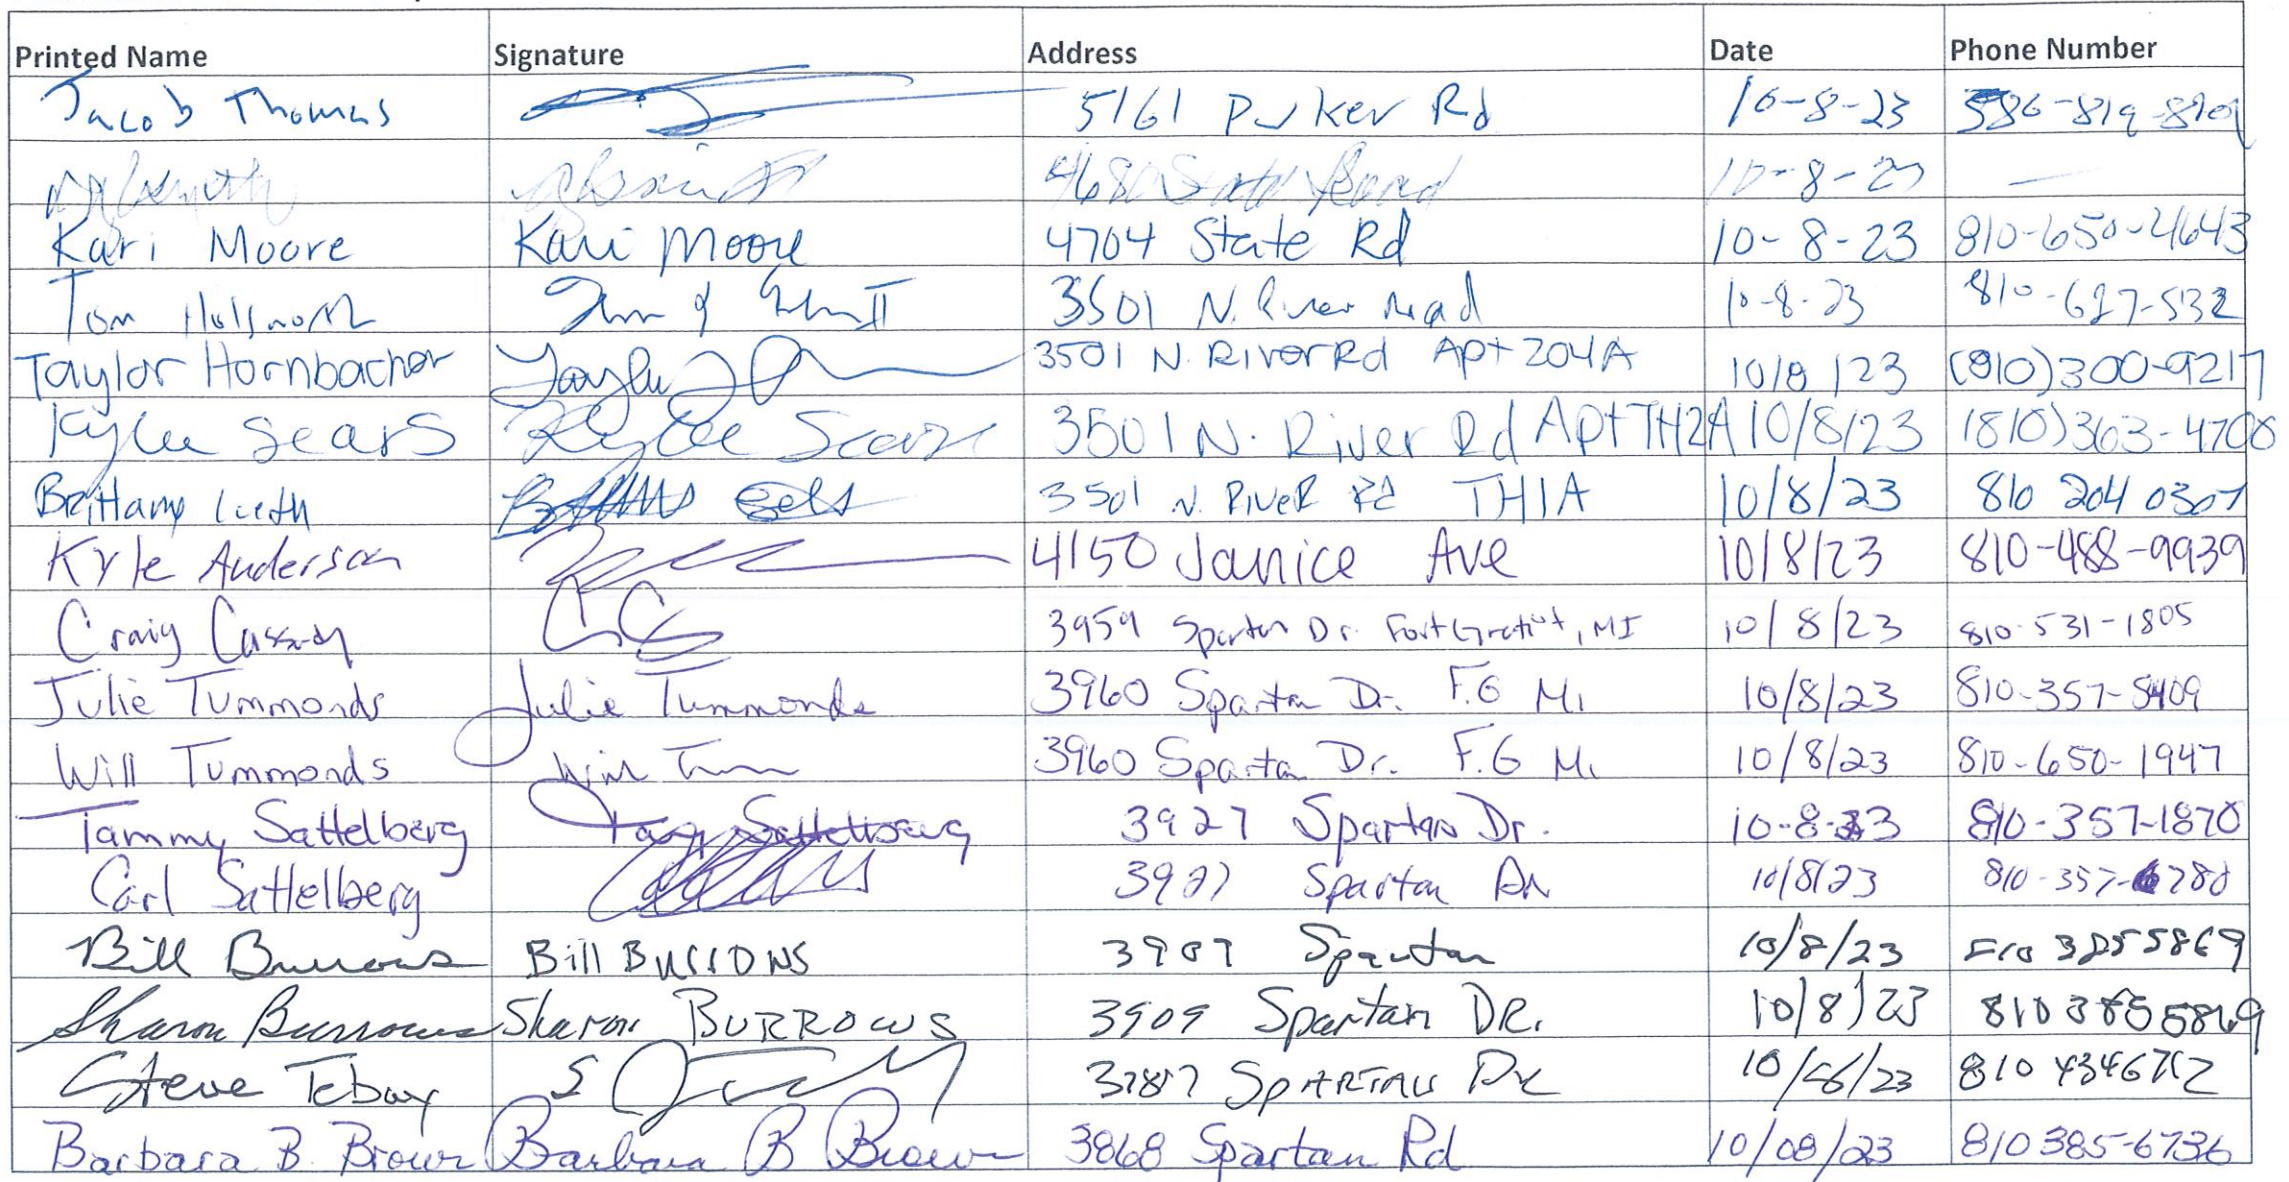 Printed Name Signature Address Date Phone Number
Jacob Thomas 5161 Parker Rd 10-8-23 586-819-8701
10-8-23 —
Kari Moore Kari Moore 4704 State Rd 10-8-23 810-650-4643
Tom 3501 N. River road 10-8-23 810-627-532
Taylor Hornbacher 3501 N. River Rd Apt 204A 10/8/23 (810)300-9217
Kylee Sears Kylee Sears 3501 N. River Rd Apt TH2A 10/8/23 (810)363-4708
Brittany 3501 N. RIVER Rd TH1A 10/8/23 810 204 0307
Kyle Anderson 4150 Janice Ave 10/8/23 810-488-9939
Craig Cassidy CC 3959 Spartan Dr. Fort Gratiot, MI 10/8/23 810-531-1805
Julie Tummonds Julie Tummonds 3960 Spartan Dr. F.G Mi 10/8/23 810-357-5409
Will Tummonds Will 3960 Spartan Dr. F.G Mi 10/8/23 810-650-1947
Tammy Sattelberg Tammy Sattelberg 3927 Spartan Dr. 10-8-23 810-357-1870
Carl Sattelberg 3927 Spartan Dr 10/8/23 810-357-6780
Bill Burrows Bill BURROWS 3909 Spartan 10/8/23 810 3855869
Sharon Burrows Sharon BURROWS 3909 Spartan DR. 10/8/23 810 385 5869
Steve Tebay 3887 SPARTAN Dr 10/8/23 810 434
Barbara B. Brown Barbara B Brown 3868 Spartan Rd 10/08/23 810 385-6736